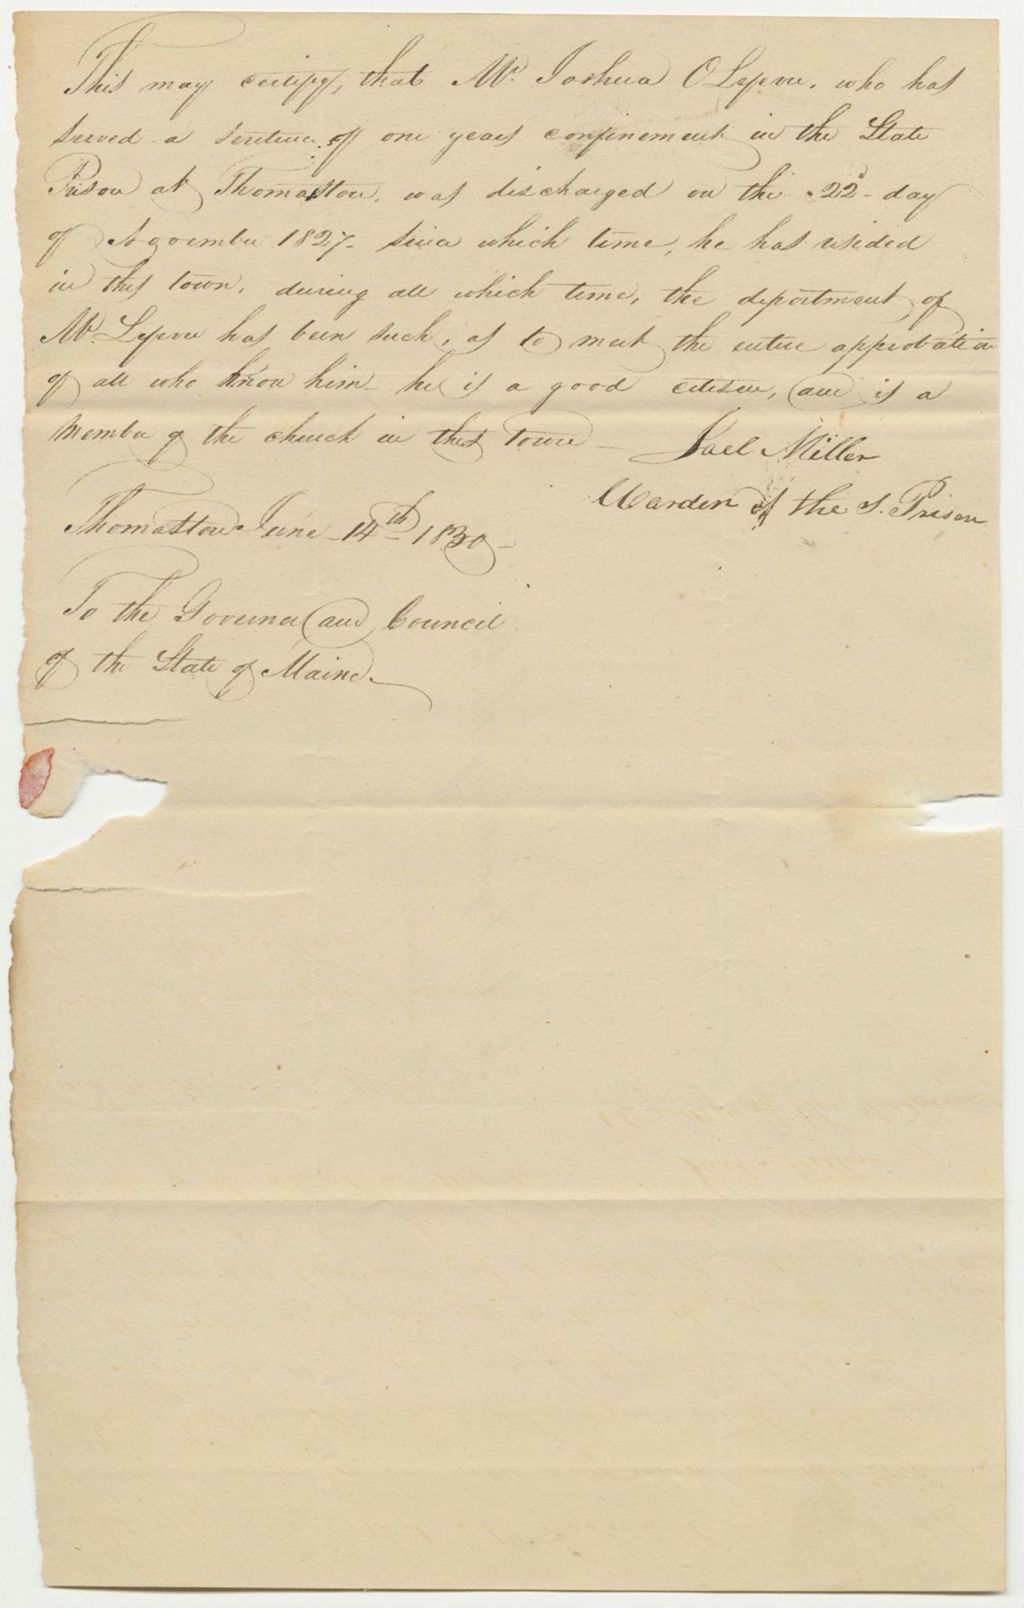 This may certify, that Mr. Joshua O Lepene, who has
served a sentence of one years confinement in the State
Prison at Thomaston, was discharged on the 22d day
of November 1827- since which time, he has resided
in this town, during all which time, the deportment of
Mr. Lepene has been such, as to meet the entire approbation
of all who know him he is a good citizen, and is a
Member of the church in this town -
Joel Miller
Warden of the S. Prison
Thomaston June 14th 1830-
To the Governor and Council
of the State of Maine.